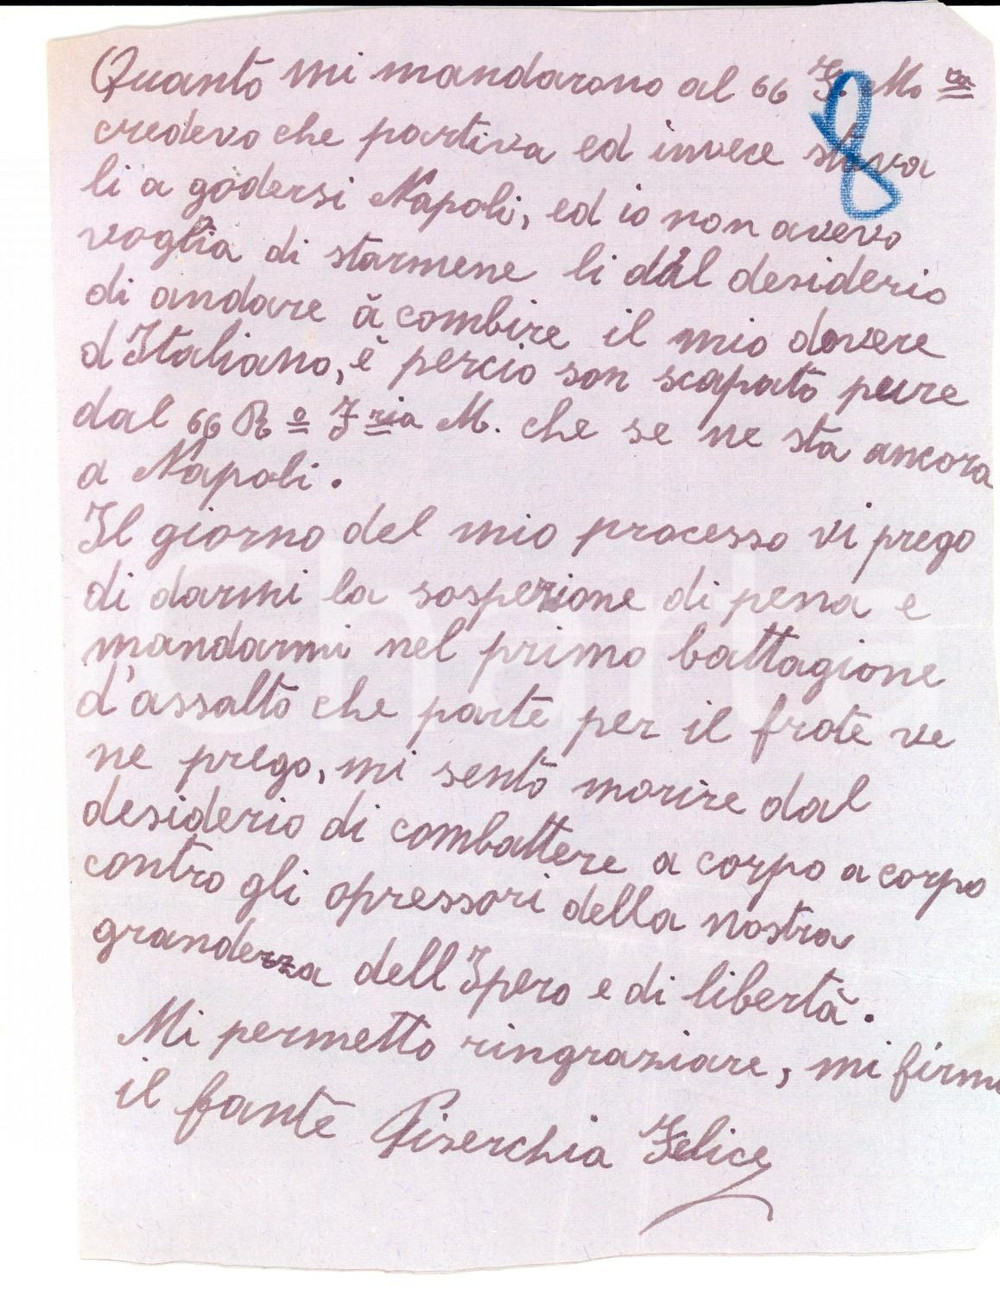 Quanto mi mandarono al 66 F. Mo ta
credevo che partiva ed invece stava
li a godersi Napoli, ed io non avevo
voglia di starmene li dal desiderio
di andare à combire il mio dovere
d Italiano, è perciò son scapato pure
dal 66 R.o Fria M. che se ne sta ancora
a Napoli.
Il giorno del mio processo vi prego
di darmi la sospezione di pena e
mandarmi nel primo battagione
d'assalto che parte per il frote ve
ne prego, mi sento morire dal
desiderio di combattere a corpo a corpo
contro gli opressori della nostra
grandezza dell Ipero e di libertà.
Mi permetto ringraziare, mi firmo
il fante Piserchia Felice
8
Charta